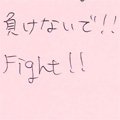 負けないで!!
Fight!!